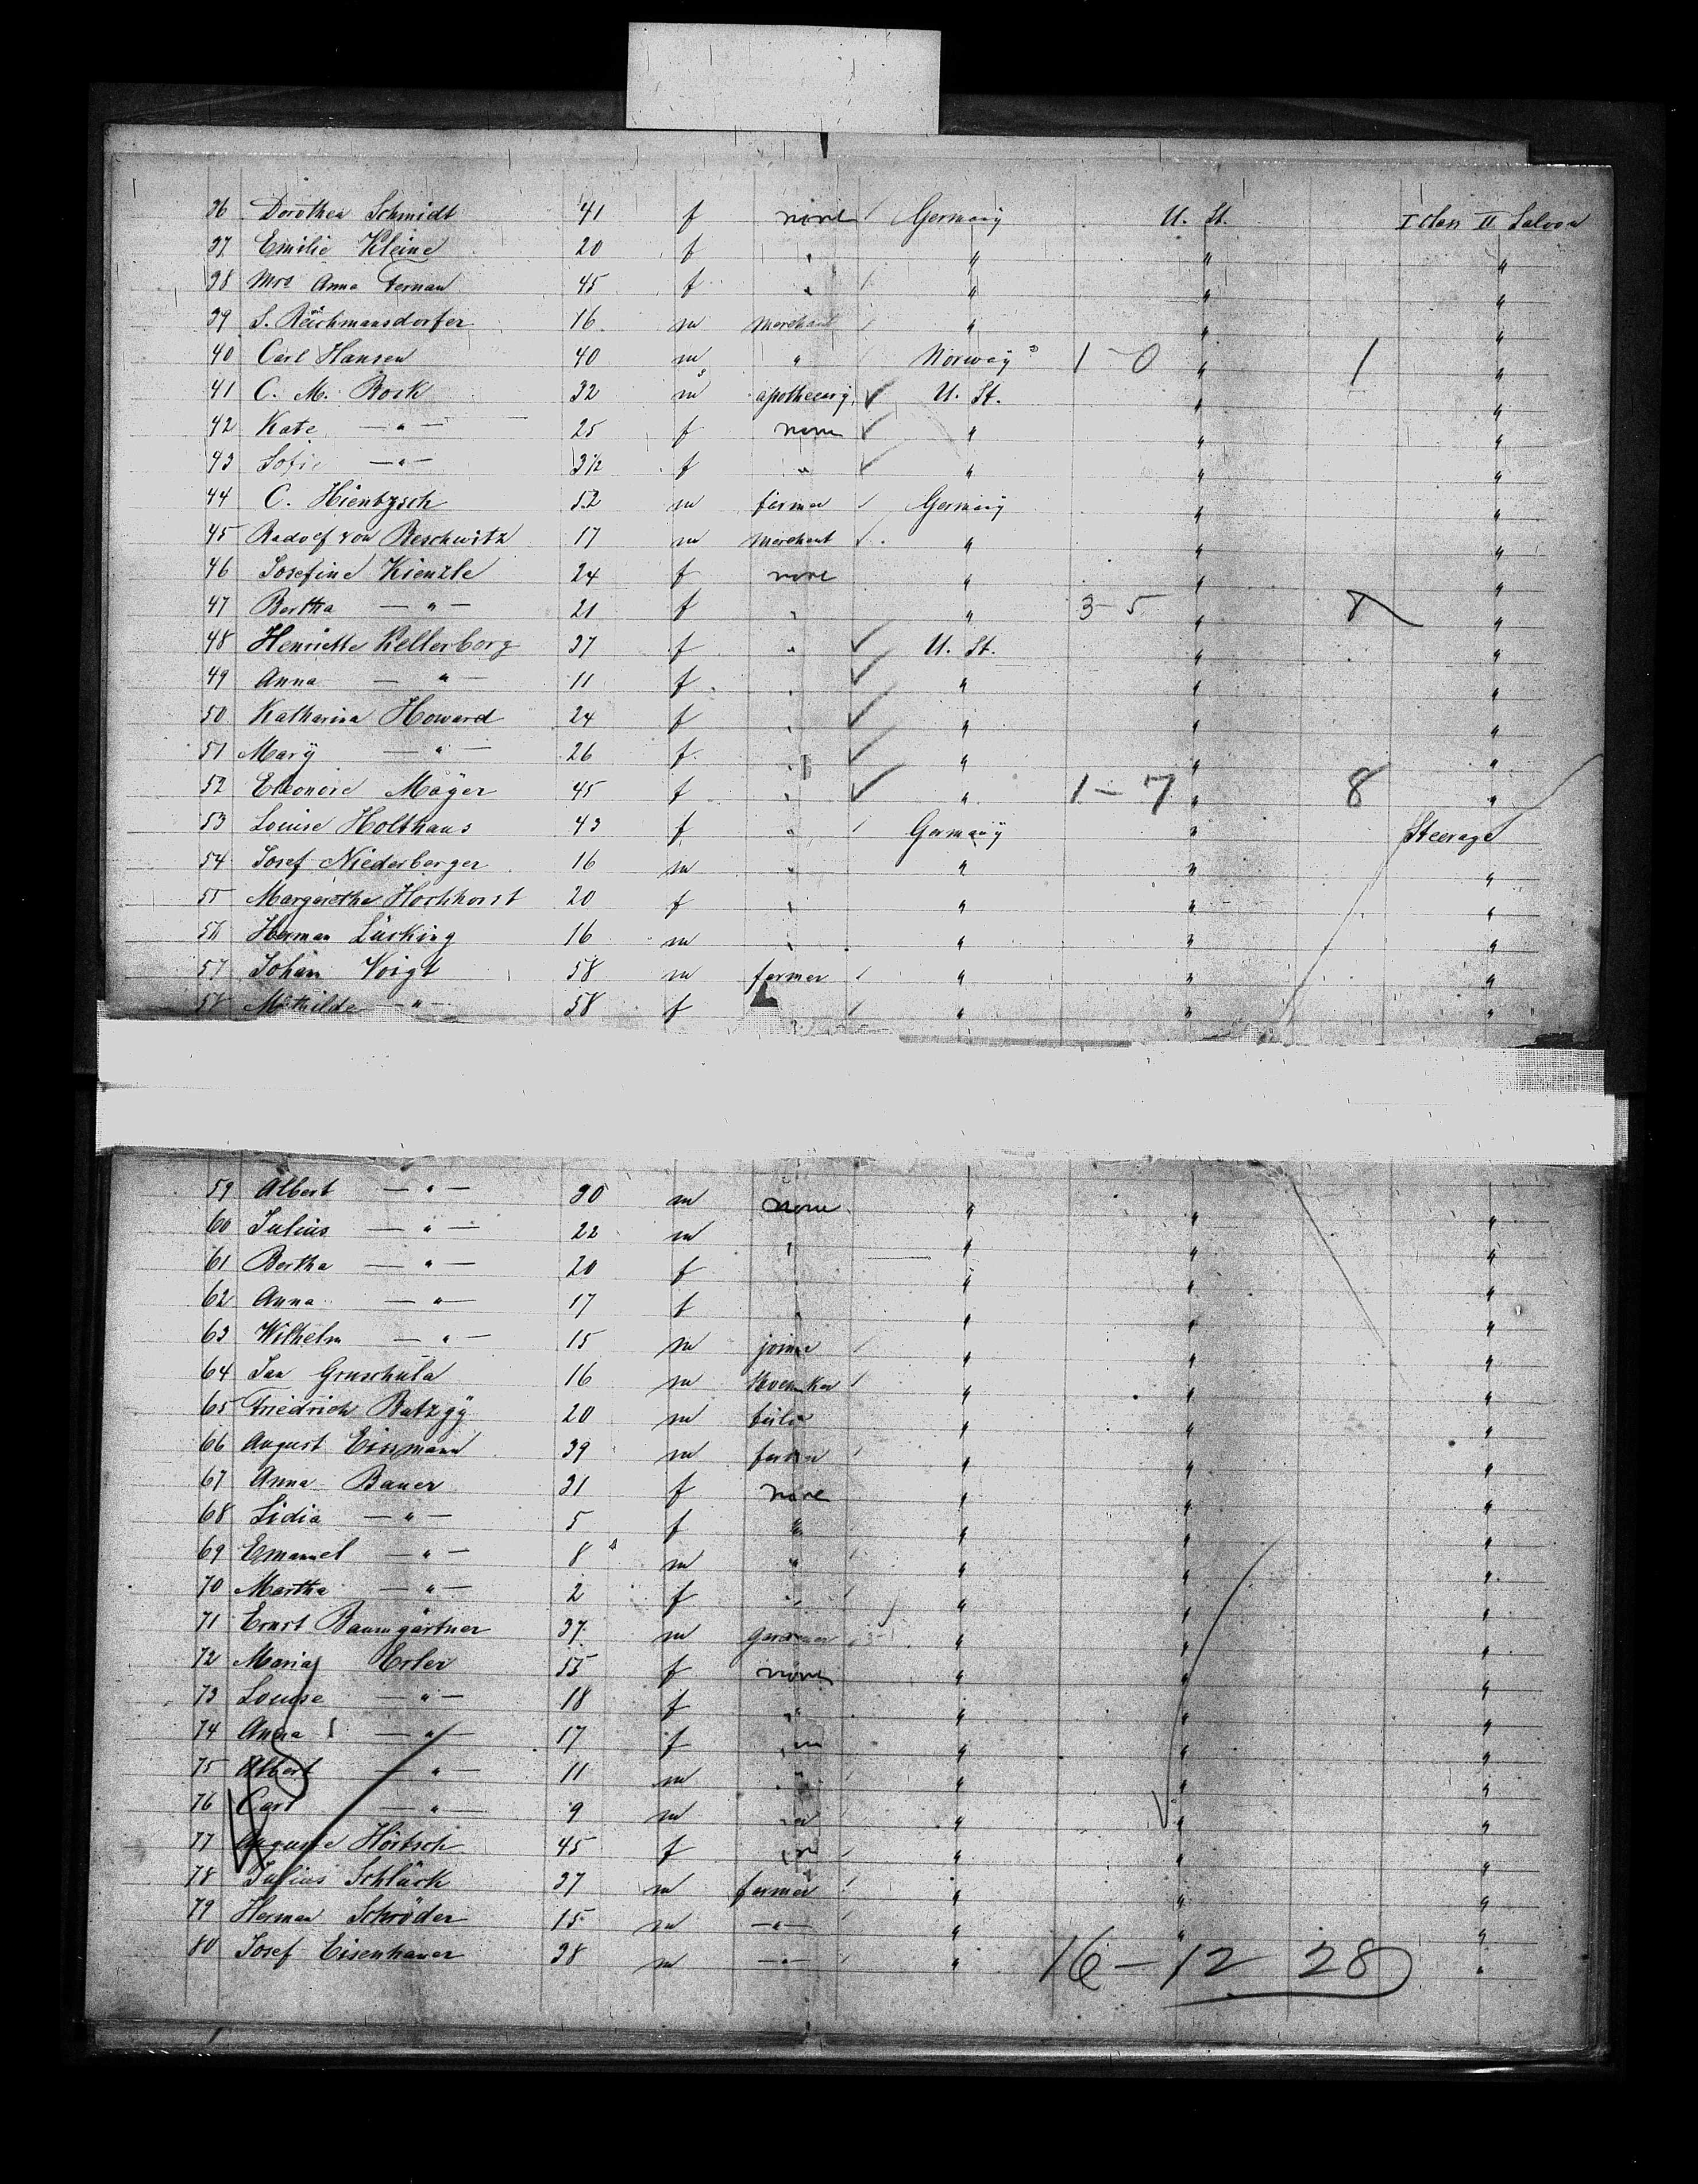 36 Dorothea Schmidt 41 f none Germany U. St. I Class II Saloon
37 Emilie Kleine 20 f " " " "
38 Mrs Anna Fernau 45 f " " " "
39 S. Reichmansdorfer 16 m merchant " " "
40 Carl Hansen 40 m " Norway 1-0 " 1 "
41 C. M. Bosk 32 m apothecary U. St. " "
42 Kate — " — 25 f none " " "
43 Sofie — " — 3 1/2 f " " " "
44 C. Hientzsch 52 m farmer Germany " "
45 Radolf von Beschwitz 17 m merchant " " "
46 Josefine Kienzle 24 f none " " "
47 Bertha — " — 21 f " " 3-5 " 8 "
48 Henriette Kellerborg 37 f " U. St. " "
49 Anna — " — 11 f " " " "
50 Katharina Howard 24 f " " " "
51 Mary — " — 26 f " " " "
52 Eleonore Mäyer 45 f " " 1-7 " 8 "
53 Louise Holthaus 43 f " Germany " Steerage
54 Josef Niederberger 16 m " " " "
55 Margarethe Hochhorst 20 f " " " "
56 Herman Lücking 16 m " " " "
57 Johan Voigt 58 m farmer " " "
58 Mathilde — " — 58 f " " "
59 Albert — " — 30 m none " " "
60 Julius — " — 22 m " " " "
61 Bertha — " — 20 f " " "
62 Anna — " — 17 f " " " "
63 Wilhelm — " — 15 m joiner " " "
64 Jan Gruschula 16 m " " "
65 Friedrich Butzgy 20 m " " "
66 August Eissmann 39 m farmer " " "
67 Anna Bauer 31 f none " " "
68 Lidia — " — 5 f " " " "
69 Emanuel — " — 8 m " " " "
70 Martha — " — 2 f " " " "
71 Ernst Baumgärtner 37 m gardener " " "
72 Maria Erler 55 f none " " "
73 Louise — " — 18 f " " " "
74 Anna — " — 17 f " " " "
75 Albert — " — 11 m " " " "
76 Carl — " — 9 m " " " "
77 Auguste Hörtsch 45 f " " " "
78 Julius Schlück 37 m farmer " " "
79 Herman Schröder 15 m — " — " " "
80 Josef Eisenhauer 38 m — " — " 16-12 28 "